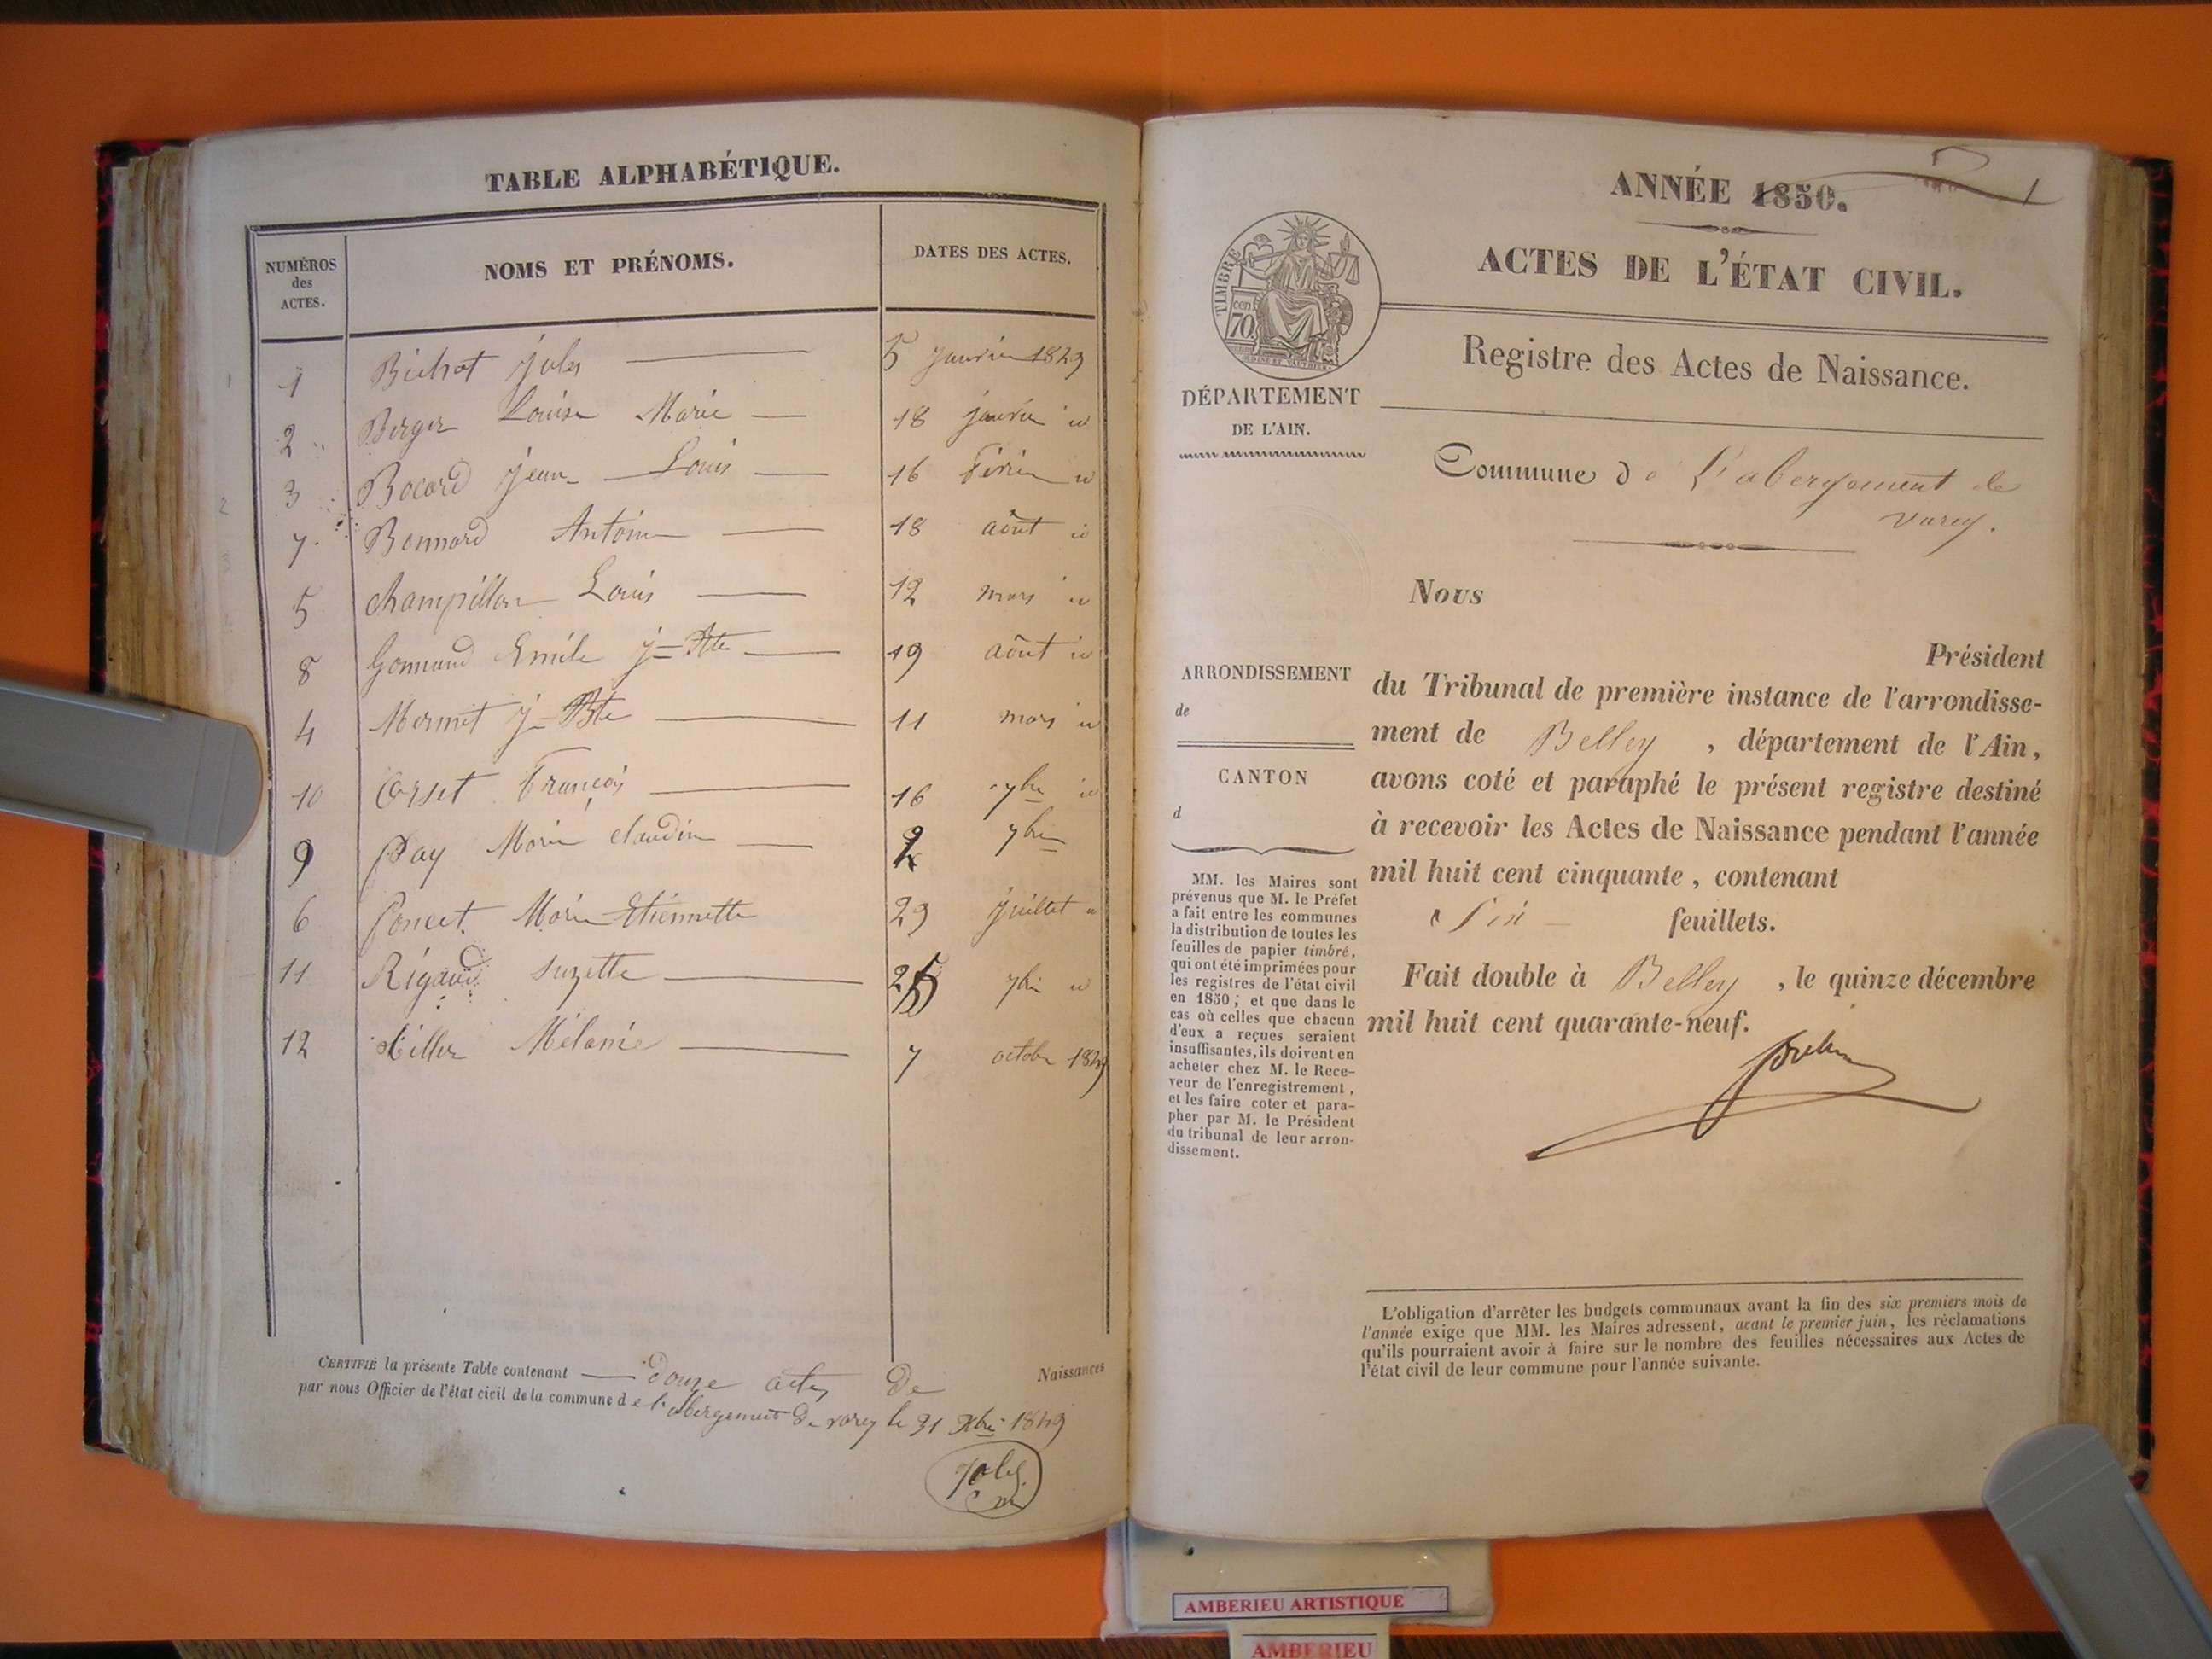 TABLE ALPHABÉTIQUE.
NUMÉROS des ACTES.
NOMS ET PRÉNOMS.
DATES DES ACTES.
1 Bichat jules 5 janvier 1849
2 Berger Louise Marie 18 janvier id
3 Bocard jean Louis 16 février id
7 Bonnard Antoine 18 août id
5 Champillon Louis 12 mars id
8 Gonnand Emile j= Bte 19 août id
4 Mermet j= Bte 11 mars id
10 Orset François 16 7bre id
9 Pay Marie claudine 2 7bre
6 Poncet Marie Etiennette 29 juillet id
11 Rigaud suzette 25 7bre id
12 tiller Mélanie 7 octobre 1849
CERTIFIÉ la présente Table contenant douze actes de Naissances
par nous Officier de l'état civil de la commune de l'abergement de varey le 31 Xbre 1849
ANNÉE 1850.
ACTES DE L'ÉTAT CIVIL.
TIMBRE
cen
70
Registre des Actes de Naissance.
DÉPARTEMENT
DE L'AIN.
Commune de L'abergement de
varey.
Nous
Président
du Tribunal de première instance de l'arrondisse-
ment de Belley, département de l'Ain,
avons coté et paraphé le présent registre destiné
à recevoir les Actes de Naissance pendant l'année
mil huit cent cinquante, contenant
Six feuillets.
Fait double à Belley, le quinze décembre
mil huit cent quarante-neuf.
ARRONDISSEMENT
de
CANTON
d
MM. les Maires sont
prévenus que M. le Préfet
a fait entre les communes
la distribution de toutes les
feuilles de papier timbré,
qui ont été imprimées pour
les registres de l'état civil
en 1850; et que dans le
cas où celles que chacun
d'eux a reçues seraient
insuffisantes, ils doivent en
acheter chez M. le Rece-
veur de l'enregistrement,
et les faire coter et para-
pher par M. le Président
du tribunal de leur arron-
dissement.
L'obligation d'arrêter les budgets communaux avant la fin des six premiers mois de
l'année exige que MM. les Maires adressent, avant le premier juin, les réclamations
qu'ils pourraient avoir à faire sur le nombre des feuilles nécessaires aux Actes de
l'état civil de leur commune pour l'année suivante.
AMBERIEU ARTISTIQUE
AMBERIEU